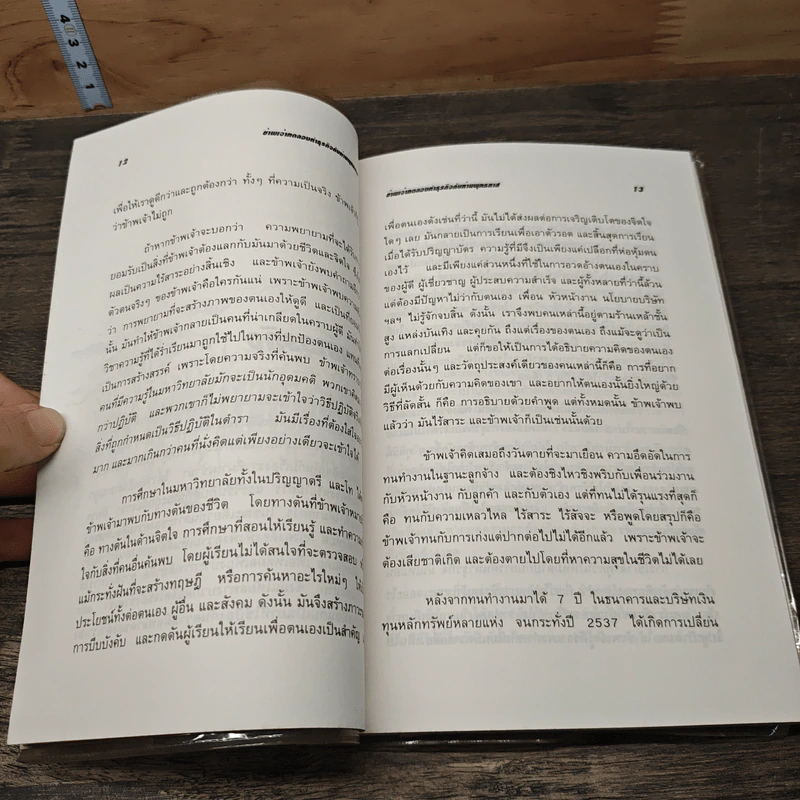 4 3 2 1
12
เพื่อให้เราดูดีกว่าและถูกต้องกว่า ทั้งๆ ที่ความเป็นจริง ข้าพเจ้า
ว่าข้าพเจ้าไม่ถูก
ถ้าหากข้าพเจ้าจะบอกว่า ความพยายามที่จะได้รับ
ยอมรับเป็นสิ่งที่ข้าพเจ้าต้องแลกกับมันมาด้วยชีวิตและจิตใจ
ผลเป็นความไร้สาระอย่างสิ้นเชิง และข้าพเจ้ายังพบคำถาม
ตัวตนจริงๆ ของข้าพเจ้าคือใครกันแน่ เพราะข้าพเจ้าพบความ
ว่า การพยายามที่จะสร้างภาพของตนเองให้ดูดี และเป็นที่
นั้น มันทำให้ข้าพเจ้ากลายเป็นคนที่น่าเกลียดในคราบผู้ดี มัน
วิชาความรู้ที่ได้ร่ำเรียนมาถูกใช้ไปในทางที่ปกป้องตนเอง แทน
เป็นการสร้างสรรค์ เพราะโดยความจริงที่ค้นพบ ข้าพเจ้า
คนที่มีความรู้ในมหาวิทยาลัยมักจะเป็นนักอุดมคติ พวกเขา
กว่าปฏิบัติ และพวกเขาก็ไม่พยายามจะเข้าใจว่าวิธีปฏิบัติ
สิ่งที่ถูกกำหนดเป็นวิธีปฏิบัติในตำรา มันมีเรื่องที่ต้องใส่ใจ
มาก และมากเกินกว่าคนที่นั่งคิดแต่เพียงอย่างเดียวจะเข้าใจได้
การศึกษาในมหาวิทยาลัยทั้งในปริญญาตรี และโท
ข้าพเจ้ามาพบกับทางตันของชีวิต โดยทางตันที่ข้าพเจ้า
คือ ทางตันในด้านจิตใจ การศึกษาที่สอนให้เรียนรู้ และทำความ
ใจกับสิ่งที่คนอื่นค้นพบ โดยผู้เรียนไม่ได้สนใจที่จะตรวจสอบ
แม้กระทั่งฝันที่จะสร้างทฤษฎี หรือการค้นหาอะไรใหม่ๆ
ประโยชน์ทั้งต่อตนเอง ผู้อื่น และสังคม ดังนั้น มันจึงสร้างภาระ
การบีบบังคับ และกดดันผู้เรียนให้เรียนเพื่อตนเองเป็นสำคัญ
13
เพื่อตนเองดังเช่นที่ว่านี้ มันไม่ได้ส่งผลต่อการเจริญเติบโตของจิตใจ
ใดๆ เลย มันกลายเป็นการเรียนเพื่อเอาตัวรอด และสิ้นสุดการเรียน
เมื่อได้รับปริญญาบัตร ความรู้ที่มีจึงเป็นเพียงแค่เปลือกที่ห่อหุ้มตน
เองไว้ และมีเพียงแค่ส่วนหนึ่งที่ใช้ในการอวดอ้างตนเองในคราบ
ของผู้ดี ผู้เชี่ยวชาญ ผู้ประสบความสำเร็จ และผู้ทั้งหลายที่ว่านี้ล้วน
แต่ต้องมีปัญหาไม่ว่ากับตนเอง เพื่อน หัวหน้างาน นโยบายบริษัท
ฯลฯ ไม่รู้จักจบสิ้น ดังนั้น เราจึงพบคนเหล่านี้อยู่ตามร้านเหล้าชั้น
สูง แหล่งบันเทิง และคุยกัน ถึงแต่เรื่องของตนเอง ถึงแม้จะดูว่าเป็น
การแลกเปลี่ยน แต่ก็ขอให้เป็นการได้อธิบายความคิดของตนเอง
ต่อเรื่องนั้นๆ และวัตถุประสงค์เดียวของคนเหล่านี้ก็คือ การที่อยาก
มีผู้เห็นด้วยกับความคิดของเขา และอยากให้ตนเองนั้นยิ่งใหญ่ด้วย
วิธีที่ลัดสั้น ก็คือ การอธิบายด้วยคำพูด แต่ทั้งหมดนั้น ข้าพเจ้าพบ
แล้วว่า มันไร้สาระ และข้าพเจ้าก็เป็นเช่นนั้นด้วย
ข้าพเจ้าคิดเสมอถึงวันตายที่จะมาเยือน ความอึดอัดในการ
ทนทำงานในฐานะลูกจ้าง และต้องชิงไหวชิงพริบกับเพื่อนร่วมงาน
กับหัวหน้างาน กับลูกค้า และกับตัวเอง แต่ที่ทนไม่ได้รุนแรงที่สุดก็
คือ ทนกับความเหลวไหล ไร้สาระ ไร้สัจจะ หรือพูดโดยสรุปก็คือ
ข้าพเจ้าทนกับการเก่งแต่ปากต่อไปไม่ได้อีกแล้ว เพราะข้าพเจ้าจะ
ต้องเสียชาติเกิด และต้องตายไปโดยที่หาความสุขในชีวิตไม่ได้เลย
หลังจากทนทำงานมาได้ 7 ปี ในธนาคารและบริษัทเงิน
ทุนหลักทรัพย์หลายแห่ง จนกระทั่งปี 2537 ได้เกิดการเปลี่ยน